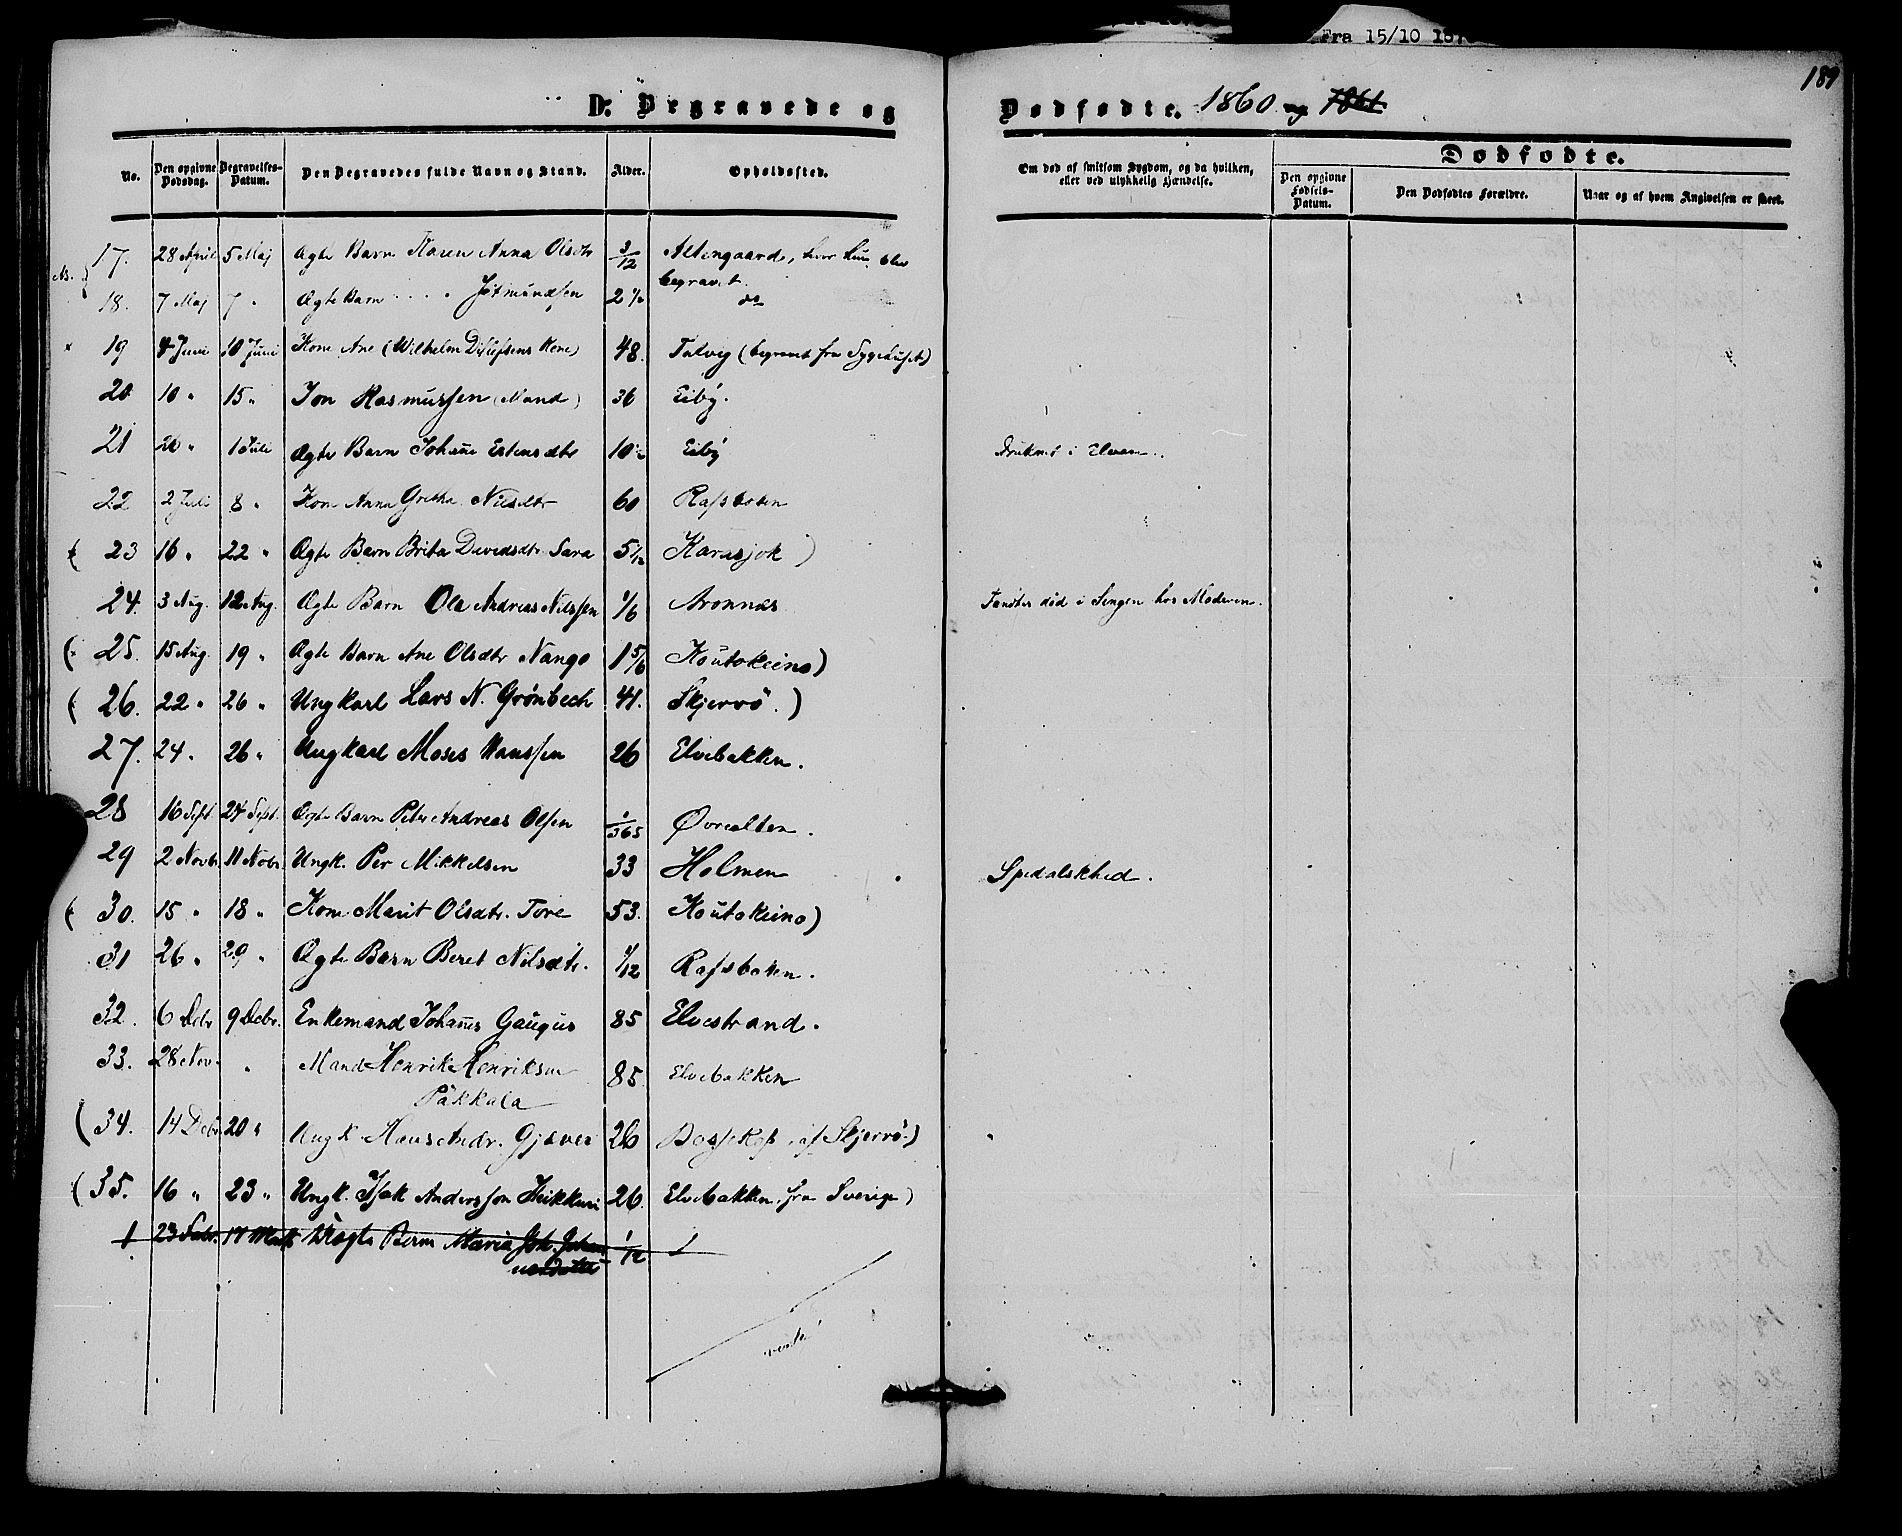 Fra 15/10 187
189
D. Begravede og Dødfødte. 1860 og 1861
No. Den opgivne Dødsdag. Begravelses-Datum. Den Begravedes fulde Navn og Stand. Alder. Opholdssted. Om død af smitsom Sygdom, og da hvilken, eller ved ulykkelig Hændelse. Dødfødte. Den opgivne Fødsels-Datum. Den Dødfødtes Forældre. Naar og af hvem Angivelsen er skeet.
17. 28 April 5 Maj Ægte Barn Karen Anna Olsdtr 3/12 Altengaard, hvor hun blev begravet
18. 7 Maj 7 " Ægte Barn . . . . Jetmundsen 2 do
19 4 Juni 10 Juni Kone Ane (Wilhelm Ditlefsens Kone) 48. Talvig (begravet fra Sygehuset)
20 10 " 15 " Jon Rasmussen (Mand) 36 Eiby.
21 20 " 1 Juli Ægte Barn Johanne Estensdtr 10 Eiby Druknet i Elven.
22 2 Juli 8 " Kone Anna Gretha Nilsdtr 60 Rafsboten
23 16 " 22 " Ægte Barn Brita Davidsdtr Sara 5/12 Karasjok )
24. 3 Aug. 12 Aug. Ægte Barn Ole Andreas Nilssen 1/6 Aronnæs Fandtes død i Sengen hos Moderen.
( 25. 15 Aug. 19 " Ægte Barn Ane Olsdtr Nango 1 5/6 Koutokeino)
( 26. 22 " 26 " Ungkarl Lars N. Grønbech 41. Skjervø. )
27. 24. " 26 " Ungkarl Moses Hanssen 26 Elvebakken.
28 16 Sept. 24 Sept. Ægte Barn Peter Andreas Olsen 1/365 Øvrealten.
29 2 Novbr. 11 Novbr. Ungk. Per Mikkelsen 33 Holmen Spedalskhed.
( 30. 15 " 18 " Kone Marit Olsdtr. Tore 53. Koutokeino)
31 26 " 29 " Ægte Barn Beret Nilsdtr. 1/12 Rafsboten.
32. 6 Decbr 9 Decbr. Enkemand Johannes Gaugus 85 Elvestrand.
33. 28 Nov. " Mand Henrik Henriksen 85. Elvebakken
Pakkala
( 34. 14 Decbr 20 " Ungk Hans Andr. Gjæver 26 Bossekop, af Skjervø.)
( 35. 16 " 23 " Ungk. Isak Andersson Heikkuri 26. Elvebakken, fra Sverige)
1 23 Febr. 17 Marts Uægte Barn Maria Joh. 1/12